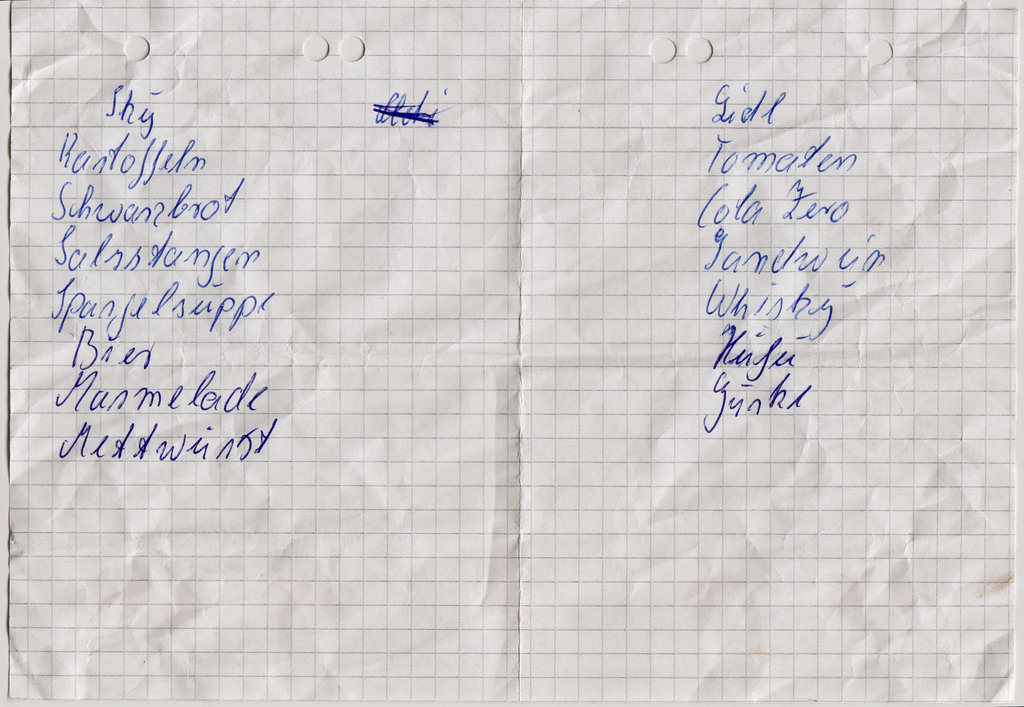 Sky
Kartoffeln
Schwarzbrot
Salzstangen
Spargelsuppe
Bier
Marmelade
Mettwurst
Aldi
Lidl
Tomaten
Cola Zero
Whisky
Gurke